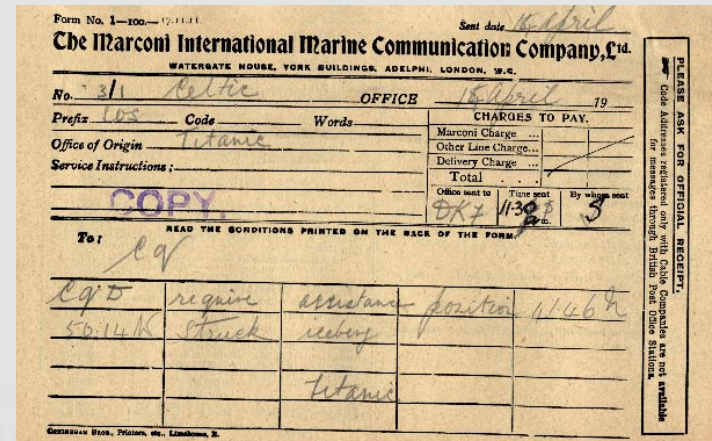 Form No. 1—100.—17.11.11. Sent date 15 April
The Marconi International Marine Communication Company, Ltd.
WATERGATE HOUSE, YORK BUILDINGS, ADELPHI, LONDON, W.C.
No. 3/1 Celtic OFFICE 15 April 19
Prefix Code Words
CHARGES TO PAY.
Office of Origin Titanic
Marconi Charge ...
Other Line Charge...
Service Instructions:
Delivery Charge ...
Total
COPY.
Office sent to Time sent By whom sent
11.30 m. S
READ THE CONDITIONS PRINTED ON THE BACK OF THE FORM.
To: Cq
CqD require assistance position 41.46 N
50.14 W struck iceberg
Titanic
Printers, etc., Limehouse, E.
PLEASE ASK FOR OFFICIAL RECEIPT.
Code Addresses registered only with Cable Companies are not available
for messages through British Post Office Stations.